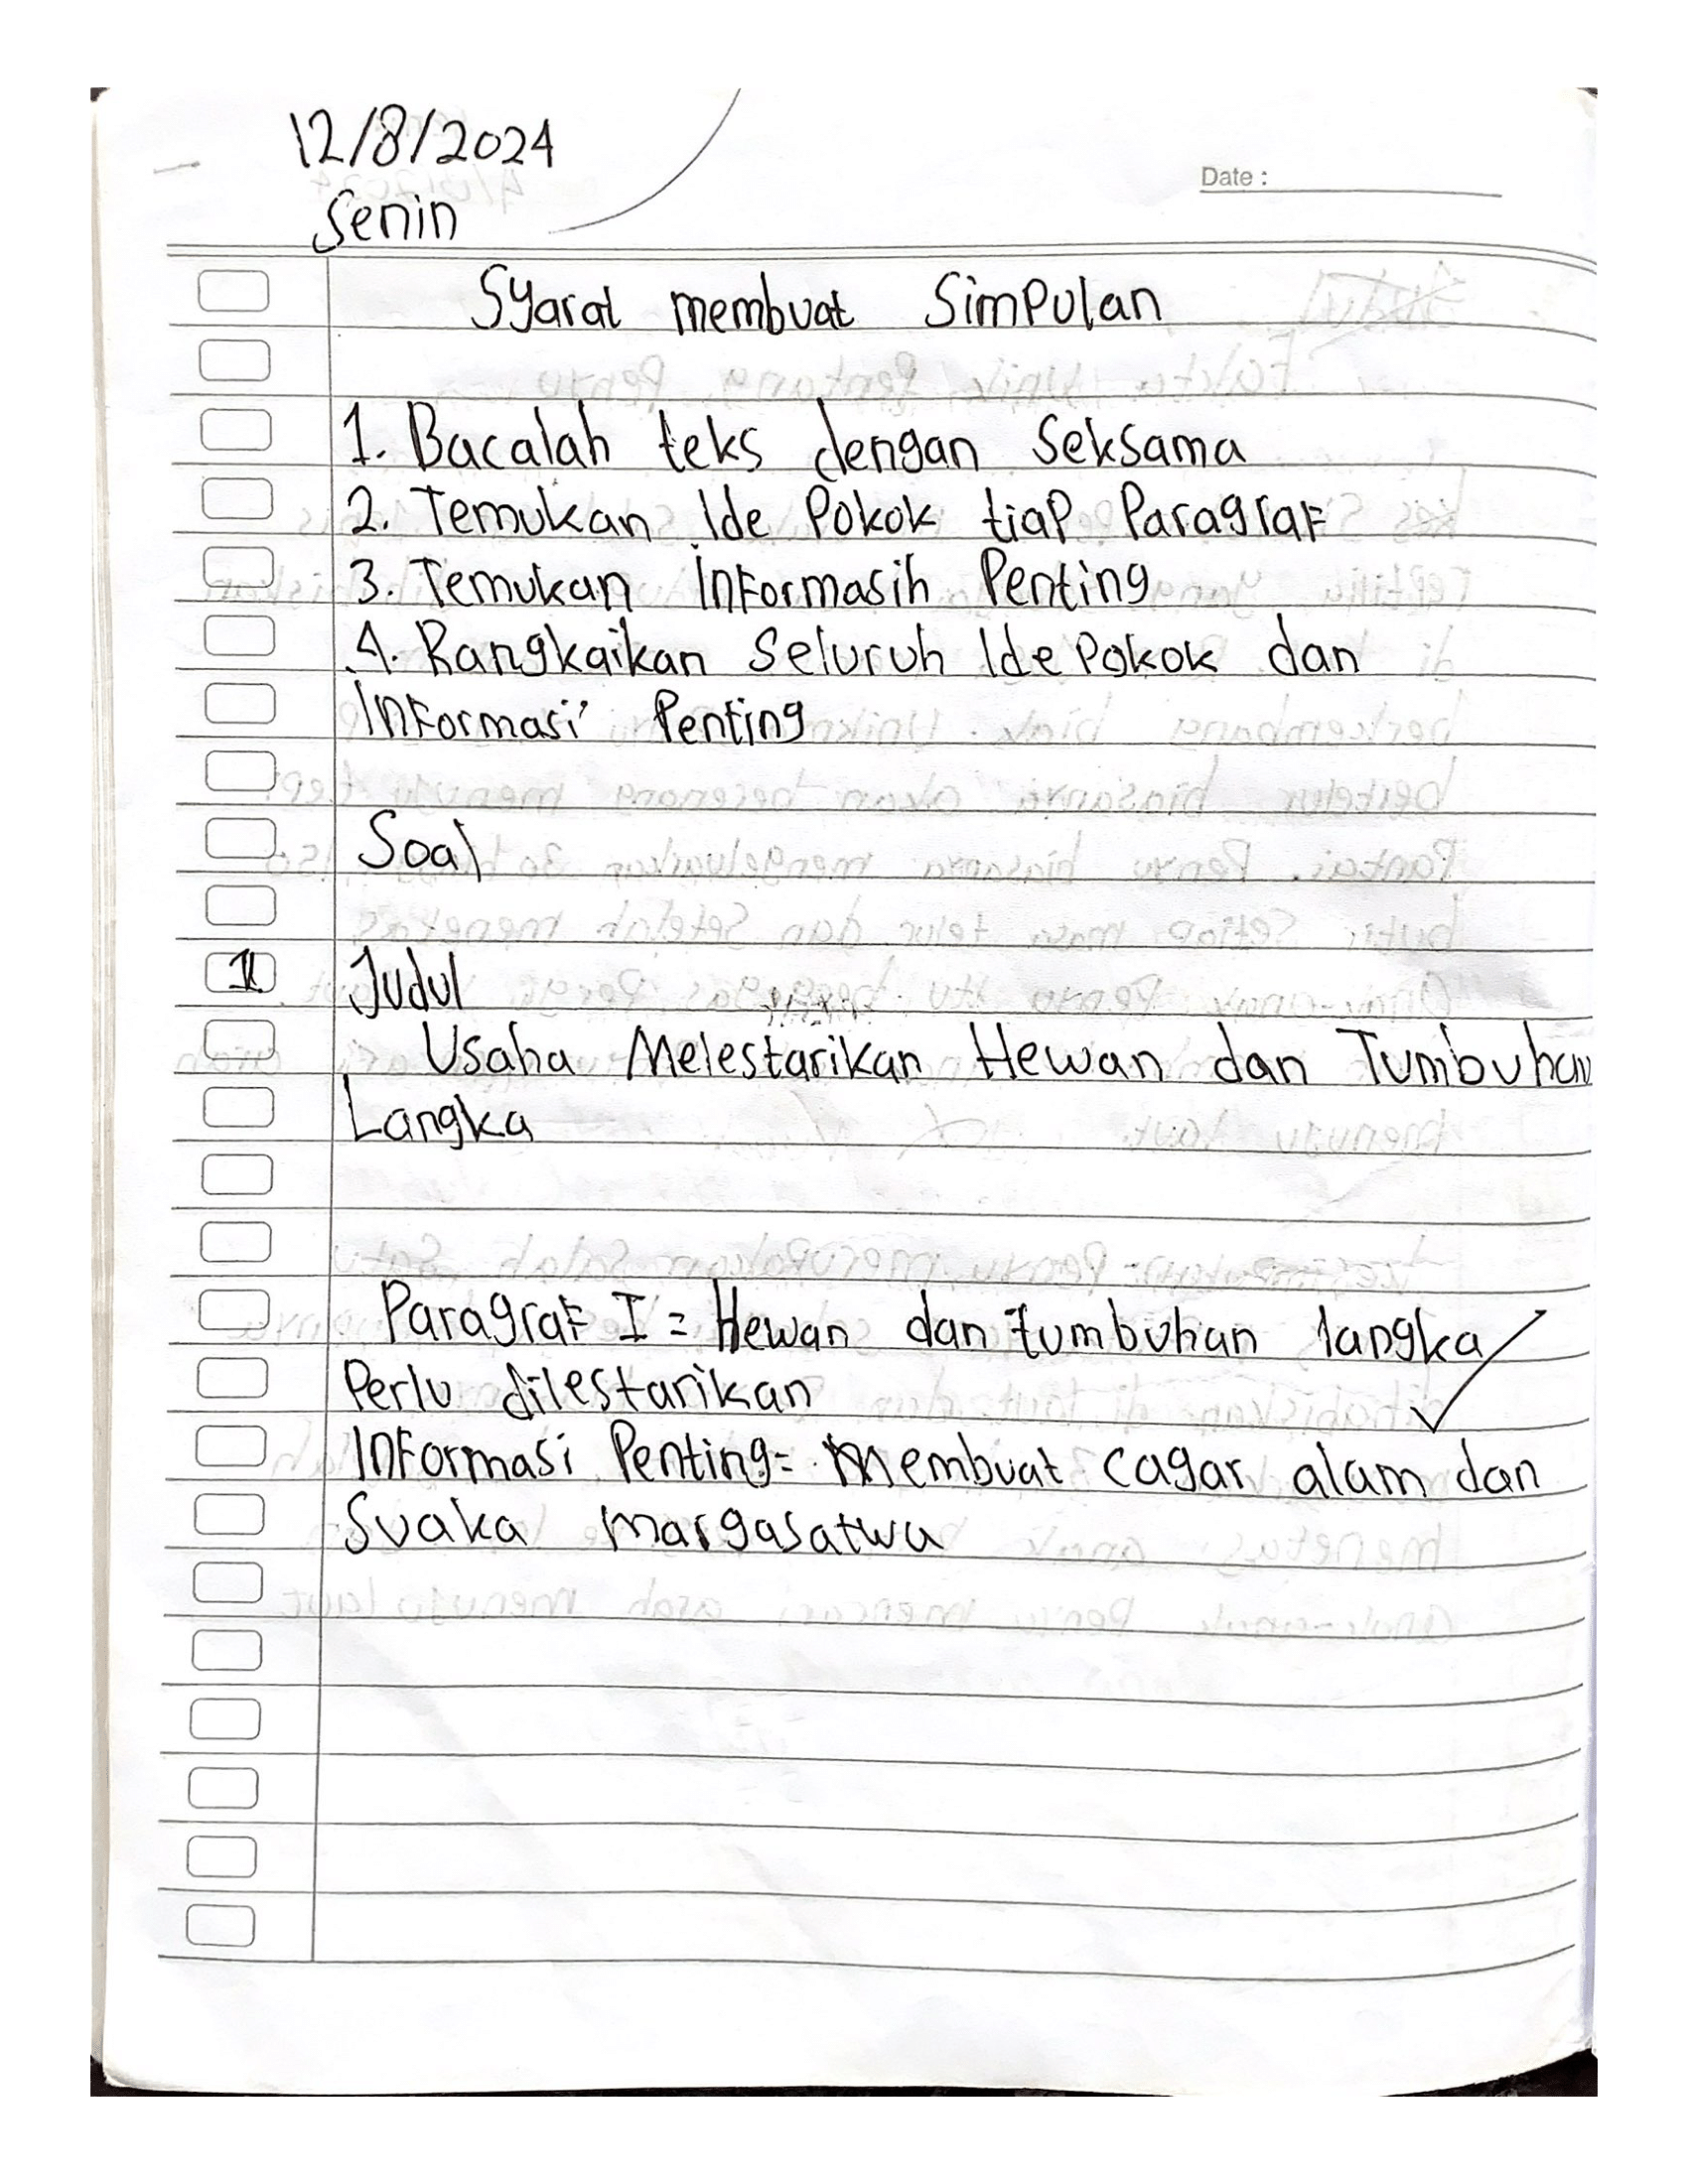 12/8/2024
Date :
Senin
Syarat membuat Simpulan
1. Bacalah teks dengan Seksama
2. Temukan Ide Pokok tiap Paragraf
3. Temukan Informasih Penting
4. Rangkaikan Seluruh Ide Pokok dan
Informasi Penting
Soal
1 Judul
Usaha Melestarikan Hewan dan Tumbuhan
Langka
Paragraf I = Hewan dan tumbuhan langka
Perlu dilestarikan
Informasi Penting = Membuat cagar alam dan
Suaka margasatwa